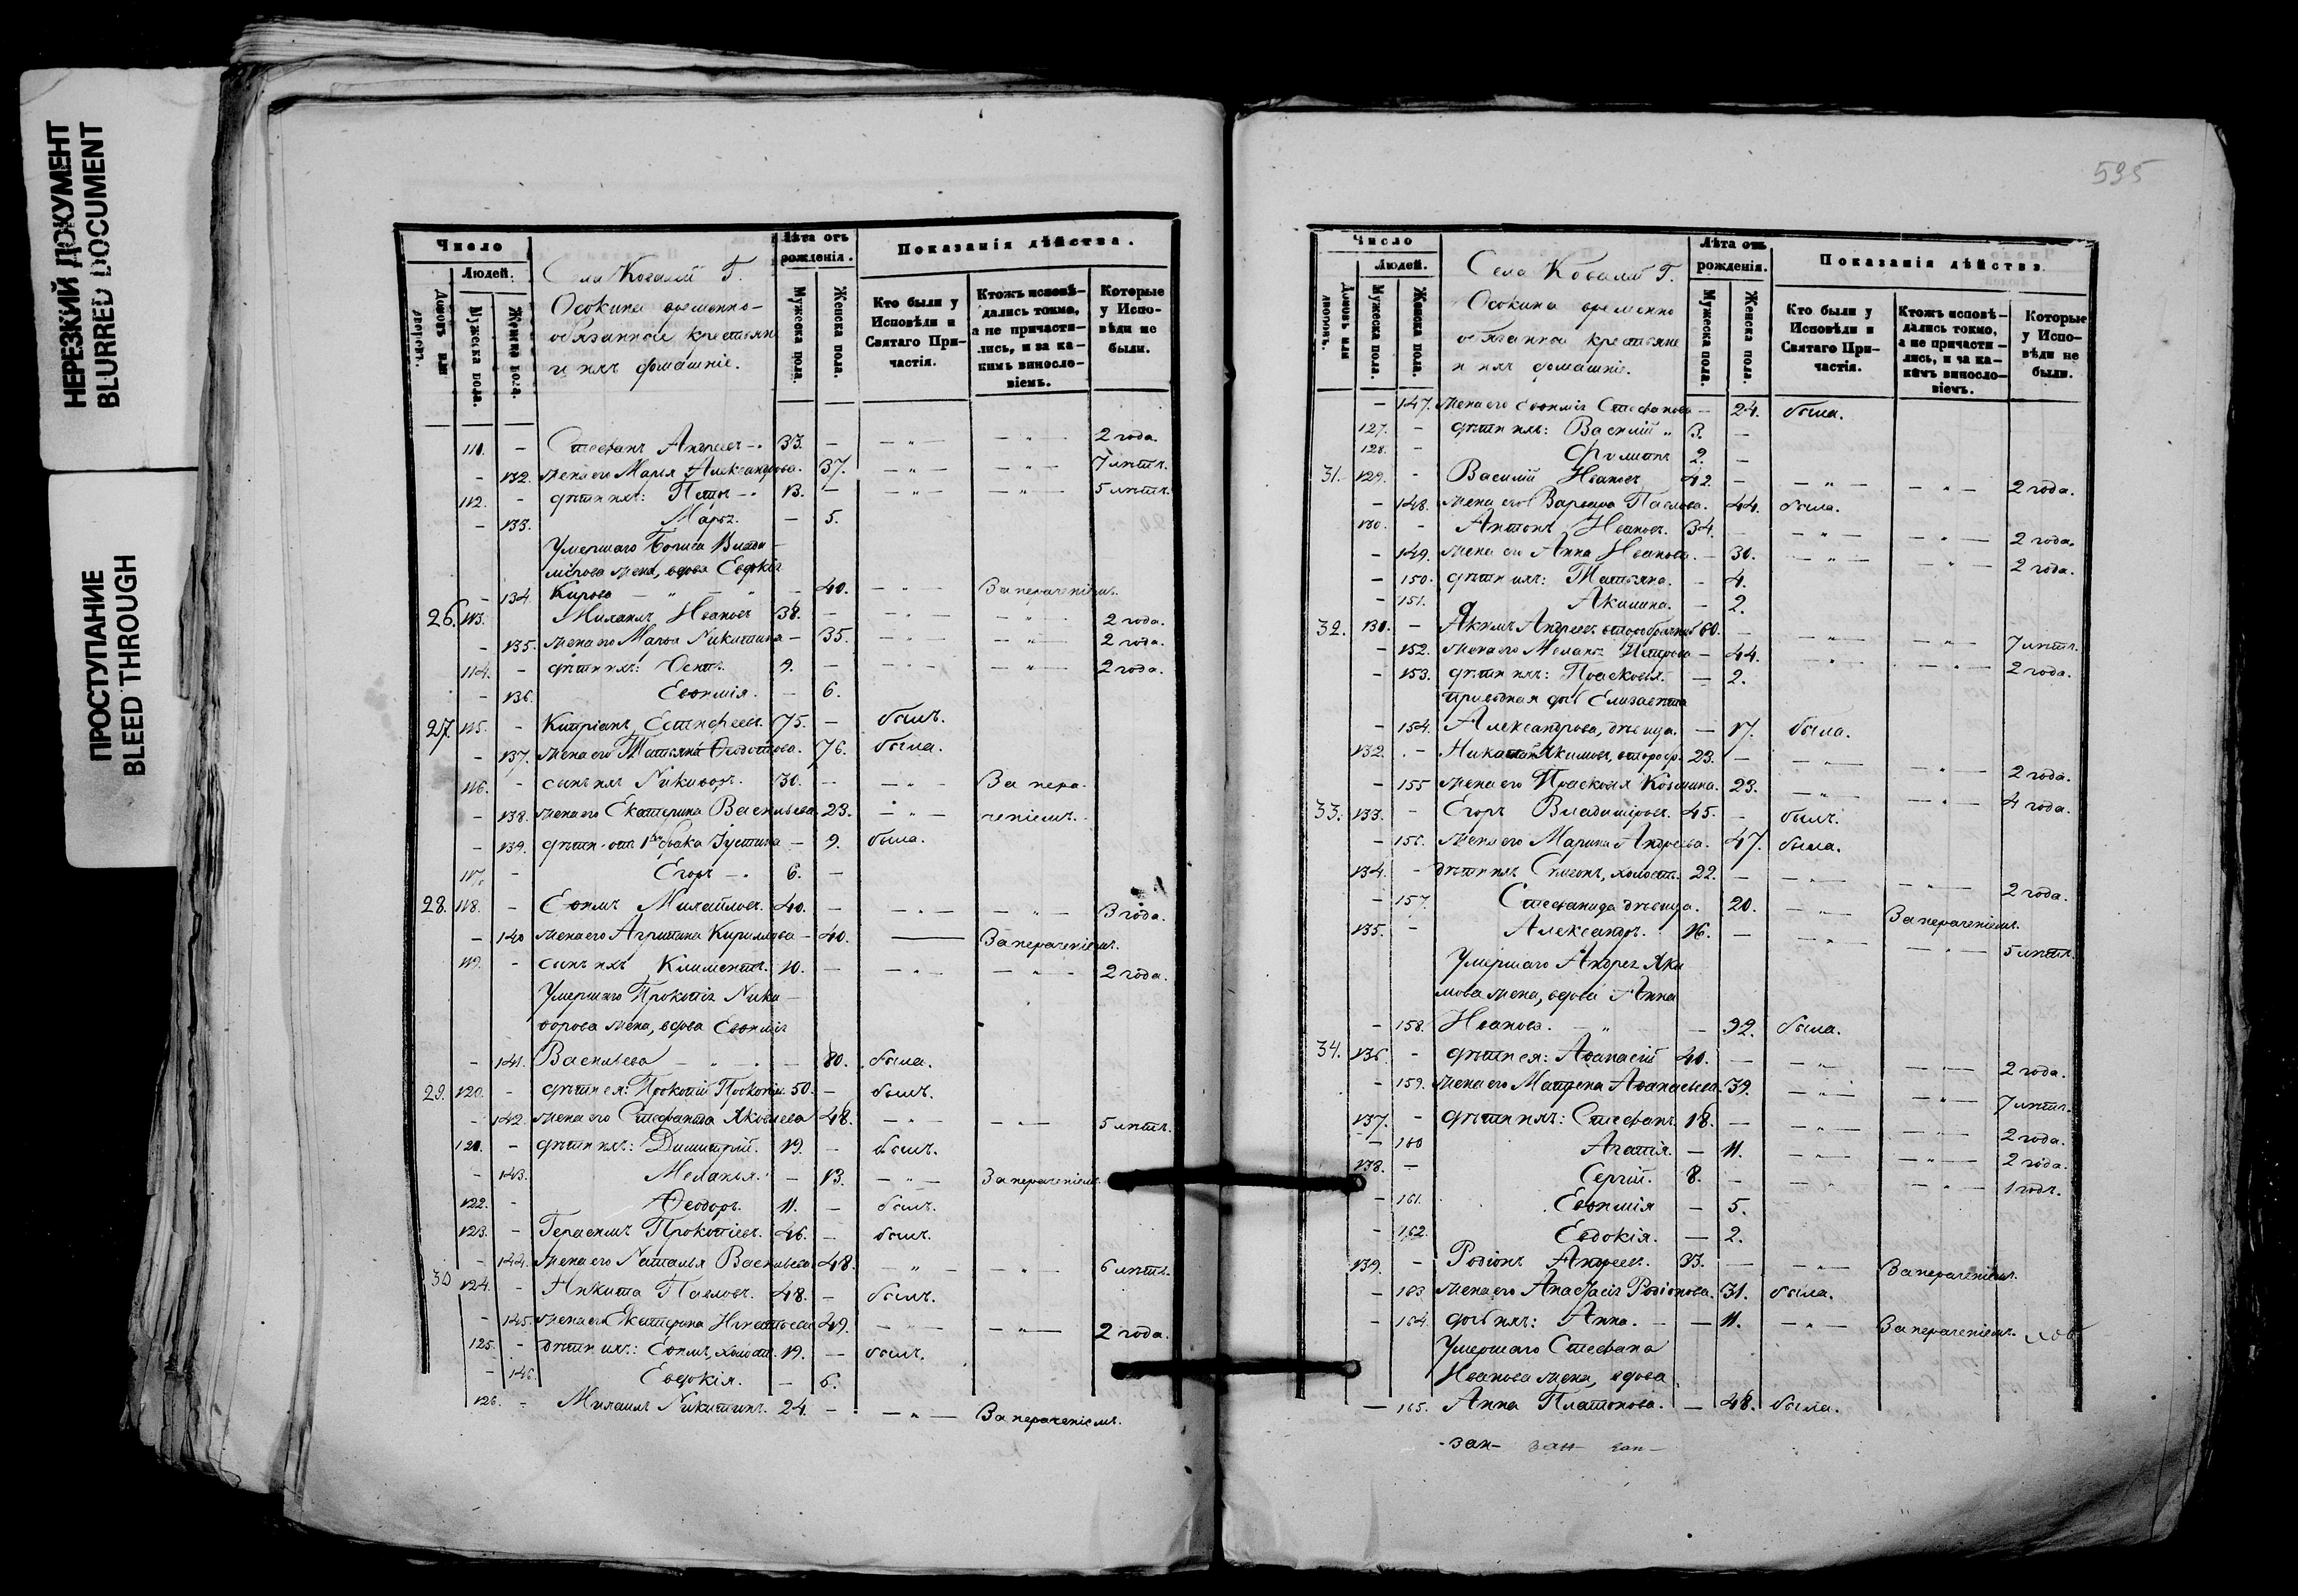 НЕРЕЗКИЙ ДОКУМЕНТ
BLURRED DOCUMENT
ПРОСТУПАНИЕ
BLEED THROUGH
Число
Людей.
Домовъ или дворовъ.
Мужеска пола.
Женска пола.
Села Г.
Осокина временно-
обязанные крестьяне
и ихъ домашніе.
Лѣта отъ рожденія.
Мужеска пола.
Женска пола.
Показанія дѣйства.
Кто были у Исповѣди и Святаго Причастія.
Ктожъ исповѣдались токмо, а не причастились, и за какимъ винословіемъ.
Которые у Исповѣди не были.
111. - Стефанъ Андреевъ -. 33. - -„- -„- 2 года.
- 132. жена его Марья Александрова. 37. -„- -„- 7 лѣтъ.
112. - дѣти ихъ: Петръ -. 13. - -„- -„- 5 лѣтъ.
- 133. - 5.
Умершаго Бориса Влади-
мірова жена, вдова Евдокія
- 134. Кирова - „ - „ - 40. -„- За нераченіемъ.
26. 113. Михаилъ Ивановъ 38. - -„- -„- 2 года.
- 135. жена его Марья Никитина - 35. -„- -„- 2 года.
114. - дѣти ихъ: 9. - -„- -„- 2 года.
- 136. Евѳимія. - 6.
27. 115. - Кипріанъ Естифеевъ. 75. - былъ.
- 137. жена его Татьяна Ѳедотова. 76. была.
116. - сынъ ихъ Никифоръ. 30. - -„- За нера-
- 138. жена его Екатерина Васильева. 23. -„- ченіемъ.
- 139. дѣти отъ 1го брака Іустина - 9. была.
117. - Егоръ -. 6. -
28. 118. - Евѳимъ Михайловъ. 40. - -„- -„- 3 года.
- 140 жена его Агрипина Кирилова - 40. —— За нераченіемъ.
119. - сынъ ихъ Климентъ. 10. - -„- -„- 2 года.
Умершаго Прокопія Ники-
форова жена, вдова Евѳимія
- 141. Васильева - „ - 80. была.
29. 120. - дѣти ея: Прокопій Прокопіев. 50. - былъ.
- 142. жена его Стефанида Яковлева 48. -„- -„- 5 лѣтъ.
121. - дѣти ихъ: Димитрій. 19. - былъ.
- 143. Меланья. - 13. -„- За нераченіемъ.
122. - Ѳеодоръ. 11. - былъ.
123. - Герасимъ Прокопіевъ. 46. - былъ.
- 144. жена его Наталья Васильева. 48. -„- -„- 6 лѣтъ.
30 124. - Никита Павловъ. 48. - былъ.
- 145. жена его Екатерина Игнатьева 49. -„- -„- 2 года.
125. - дѣти ихъ: Евѳимъ, холост. 19. - былъ.
- 146. Евдокія. - 6.
126. - Михаилъ Никитинъ. 24. - -„- За нераченіемъ.
595
Число
Людей.
Домовъ или дворовъ.
Мужеска пола.
Женска пола.
Села Г.
Осокина временно
обязанные крестьяне
и ихъ домашніе.
Лѣта отъ рожденія.
Мужеска пола.
Женска пола.
Показанія дѣйства.
Кто были у Исповѣди и Святаго Причастія.
Ктожъ исповѣдались токмо, а не причастились, и за какимъ винословіемъ.
Которые у Исповѣди не были.
- 147. жена его Евѳимія Стефанова - 24. была.
127. - дѣти ихъ: Василій „ 3. -
128. - Филипъ 2. -
31. 129. - Василій Ивановъ. 42. - -„- -„- 2 года.
- 148. жена его Варвара Павлова. 44. была.
130. - Антонъ Ивановъ. 34. - -„- -„- 2 года.
- 149. жена его Анна Иванова. - 30. -„- -„- 2 года.
- 150. дѣти ихъ: Татьяна. - 4.
- 151. Акилина. - 2.
32. 131. - Акимъ Андреевъ второбрачный 60. - -„- -„- 7 лѣтъ.
- 152. жена его Петрова - 44. -„- -„- 2 года.
- 153. дѣти ихъ: Прасковья. - 2.
приводная дочь Елизавета
- 154. Александрова, дѣвица. - 17. была.
132. - Акимовъ, второбр. 23. - -„- -„- 2 года.
- 155 жена его Прасковья Козмина. 23. -„- -„- 4 года.
33. 133. - Егоръ Владиміровъ. 45. - былъ.
- 156. жена его Марина Андреева. 47. была.
134. - дѣти ихъ Симеонъ, холостъ. 22. - -„- -„- 2 года.
- 157. Стефанида дѣвица. 20. -„- За нераченіемъ.
135. - Александръ. 16. - -„- -„- 5 лѣтъ.
Умершаго Андрея Яки
мова жена, вдова Анна
- 158. Иванова. - „ - 92. была.
34. 136 - дѣти ея: Аѳанасій 40. - -„- -„- 2 года.
- 159. жена его Матрена Аѳанасьева. 39. -„- -„- 7 лѣтъ.
137. - дѣти ихъ: Стефанъ. 18. - -„- -„- 2 года.
- 160 Агапія. - 11. -„- -„- 2 года.
138. - Сергій. 8. - -„- -„- 1 годъ.
- 161. Евѳимія - 5.
- 162. Евдокія. - 2.
139. - Родіонъ Андреевъ. 33. - -„- За нераченіемъ.
- 163 жена его Анастасія Родіонова. 31. была.
- 164. дочь ихъ: Анна. - 11. -„- За нераченіемъ.
Умершаго Стефана
Иванова жена, вдова
- 165. Анна Платонова. - 48. была.